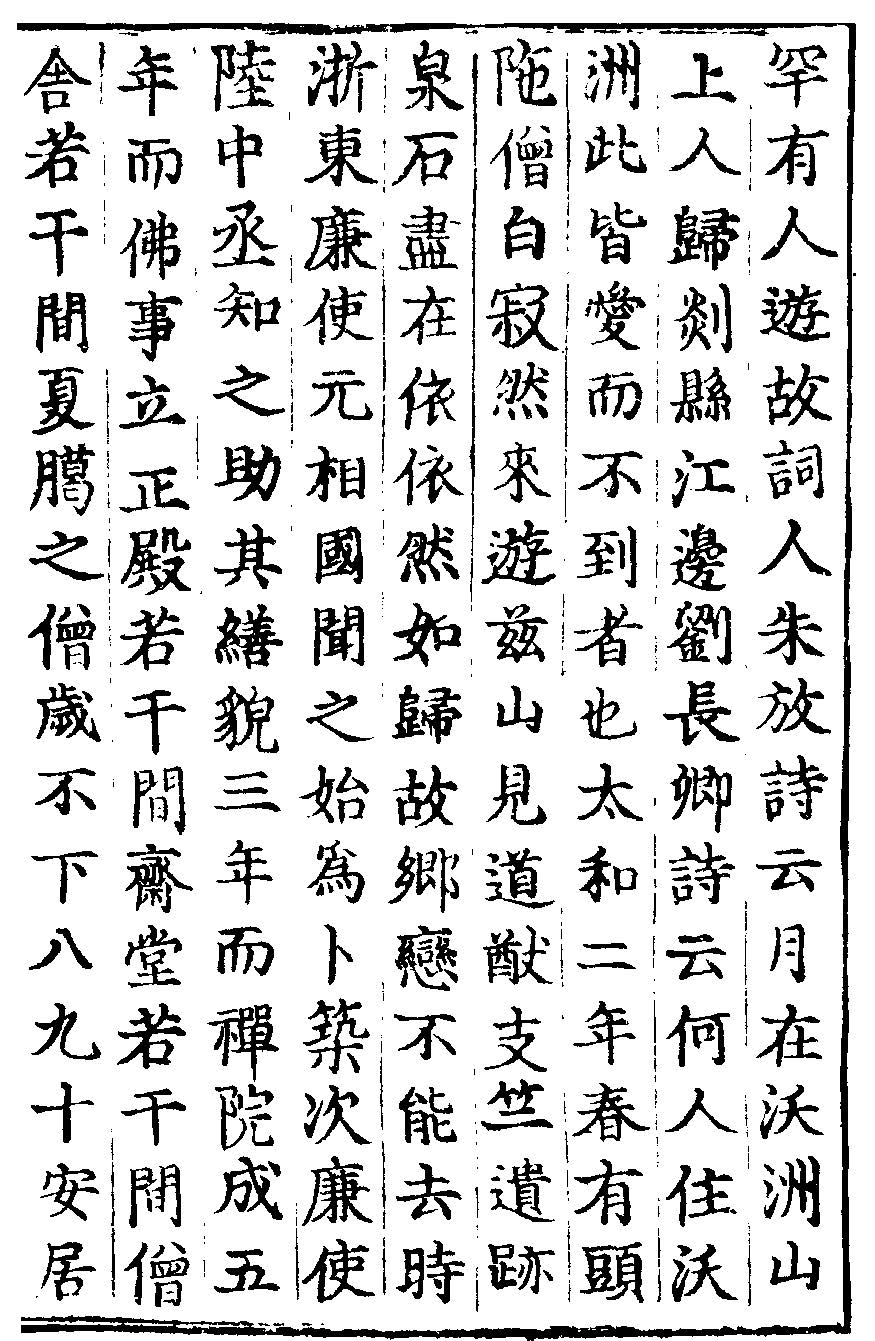 罕有人遊故詞人朱放詩云月在沃洲山
上人歸剡縣江邊劉長卿詩云何人住沃
洲此皆愛而不到者也太和二年春有頭
陁僧白寂然來遊兹山見道猷支竺遺跡
泉石盡在依依然如歸故鄉戀不能去時
浙東廉使元相國聞之始爲卜築次廉使
陸中丞知之助其繕貌三年而禪院成五
年而佛事立正殿若干間齋堂若干間僧
舎若干間夏臈之僧歲不下八九十安居